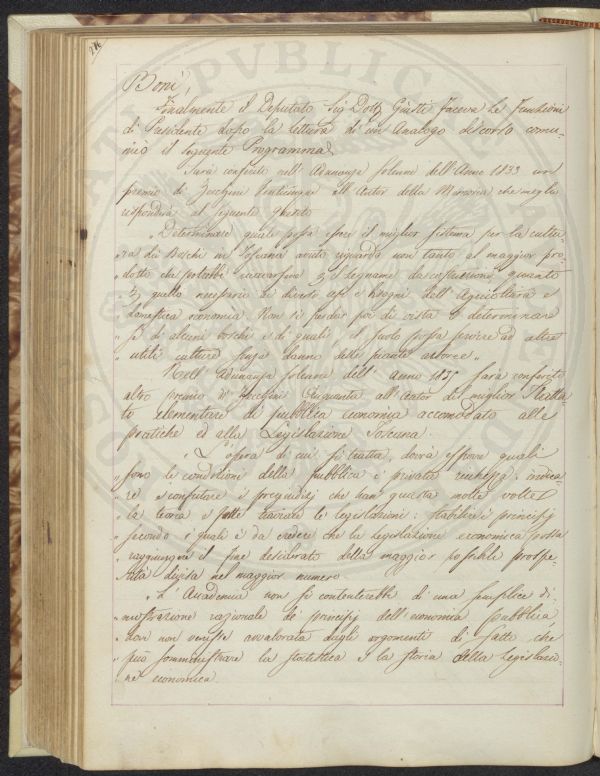 216
Boni,
Finalmente il Deputato Sig Dott Giusti faceva le Funzioni
di Presidente dopo la lettura di un Analogo discorso comu-
nicò il seguente Programma
Sarà conferito nell' Adunanza solenne dell' Anno 1833 un
premio di Zecchini Venticinque all' Autor della Memoria che meglio
risponderà al seguente Quesito
„ Determinare quale possa essere il miglior sistema per la cultu-
„ ra dei Boschi in Toscana avuto riguardo non tanto al maggior pro-
dotto che potrebbe ricavarsene di legname da costruzione quanto
di quello necessario ai diversi usi e bisogni dell' Agricoltura e
domestica economia. Non si perda poi di vista di determinare
„ se di alcuni boschi e di quali il suolo possa servire ad altre
„ utili culture senza danno delle piante arboree „
Nell' Adunanza solenne dell' Anno 1835 sarà conferito
altro premio di Zecchini Cinquanta all' Autor del miglior Tratta-
to elementare di pubblica economia accomodato alle
pratiche ed alla Legislazione Toscana.
„ L' opera di cui si tratta, dovrà esporre quali
„ sono le condizioni della pubblica e privata ricchezza: indica-
„ re e confutare i pregiudizj che han guasta molte volte
„ la teoria e fatte traviare le legislazioni: stabilire i principj
„ secondo i quali è da credere che la Legislazione economica possa
„ raggiungere il fine desiderato della maggior possibile prospe-
„ rità divisa nel maggior numero
„ L' Accademia non si contenterebbe di una semplice di-
„ mostrazione razionale de' principj dell' economia pubblica,
„ ove non venisse avvalorata dagli argomenti di fatto che
„ può somministrare la statistica e la storia della Legislazio-
„ ne economica.